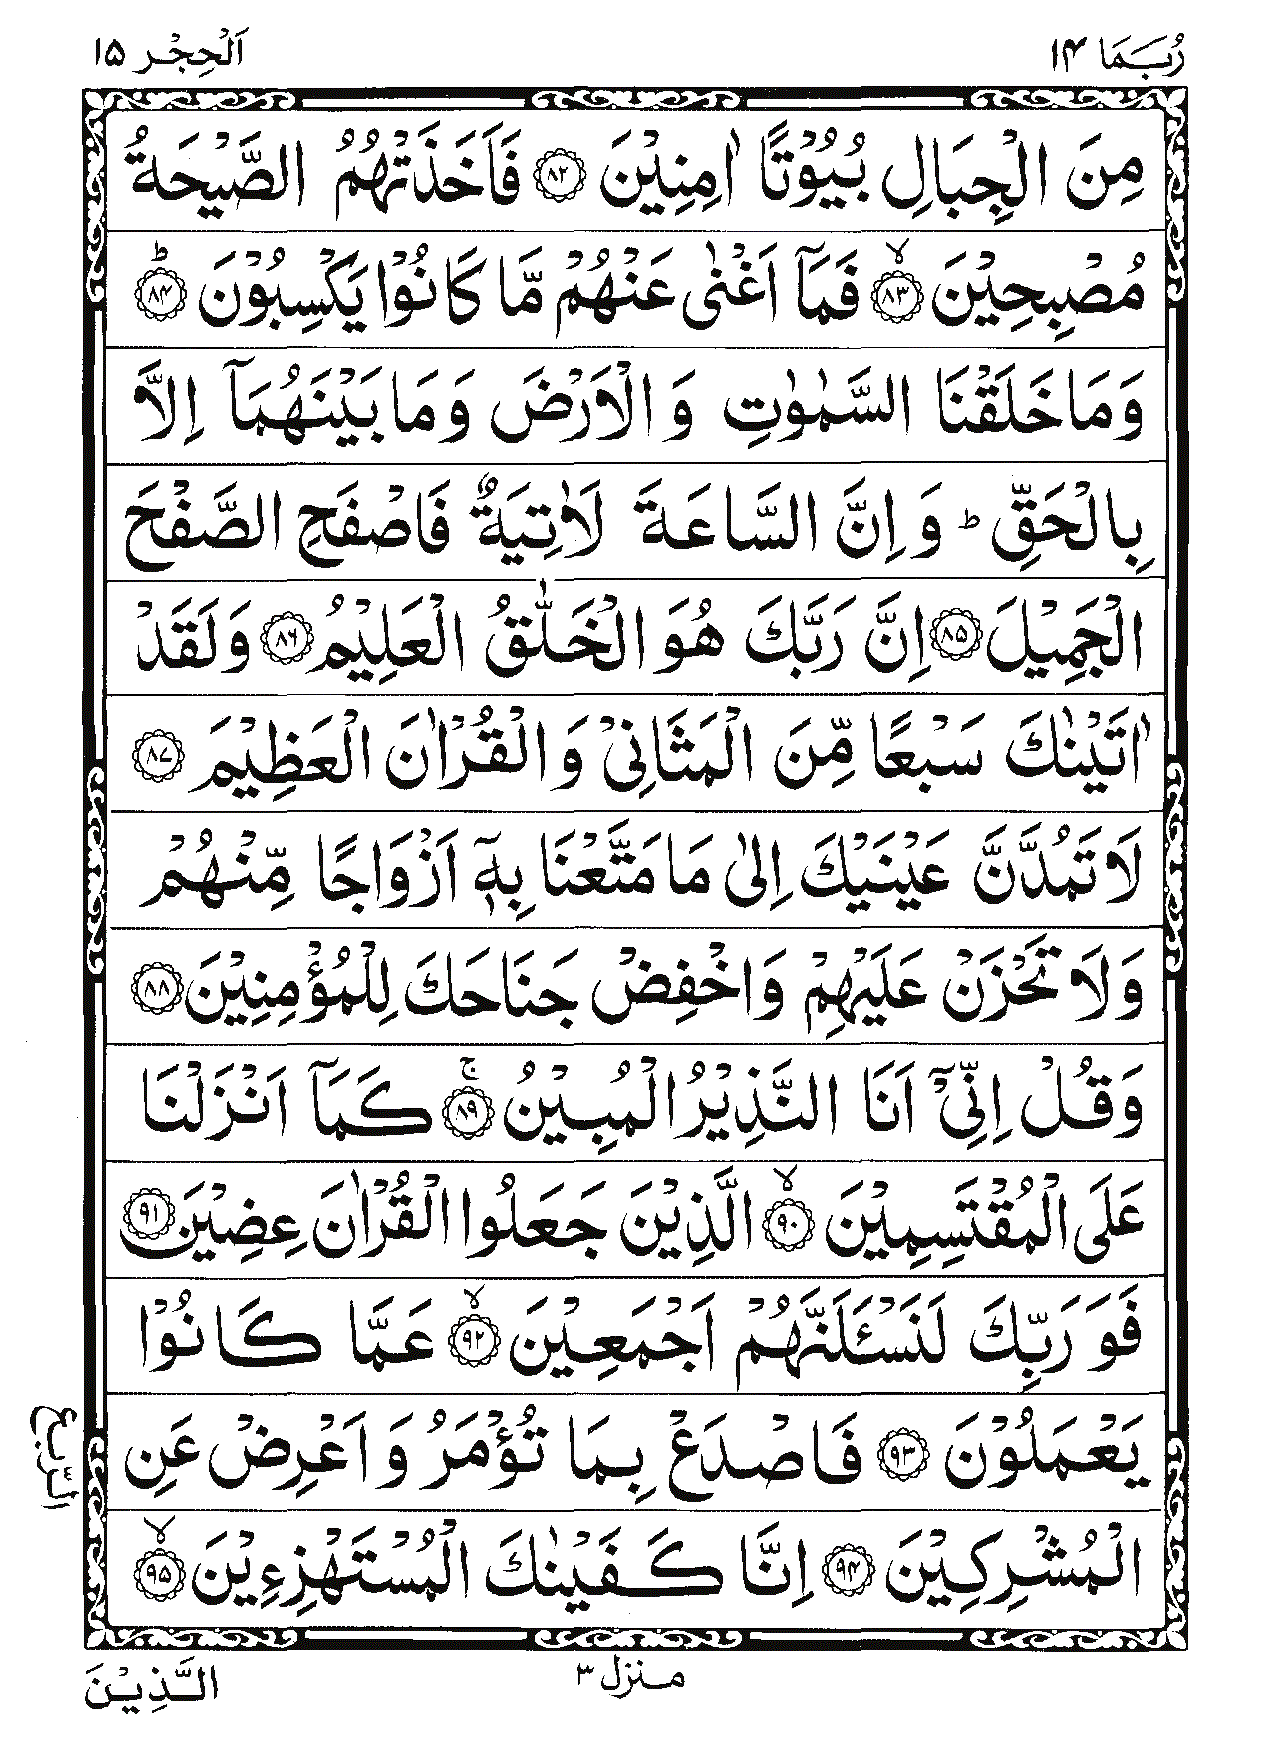 رُبَمَا ١٤
اَلْحِجْر ١٥
مِنَ الْجِبَالِ بُيُوْتًا اٰمِنِيْنَ ﴿٨٢﴾ فَاَخَذَتْهُمُ الصَّيْحَةُ
مُصْبِحِيْنَ ۙ﴿٨٣﴾ فَمَاۤ اَغْنٰى عَنْهُمْ مَّا كَانُوْا يَكْسِبُوْنَ ؕ﴿٨٤﴾
وَمَا خَلَقْنَا السَّمٰوٰتِ وَ الْاَرْضَ وَمَا بَيْنَهُمَاۤ اِلَّا
بِالْحَقِّ ؕ وَ اِنَّ السَّاعَةَ لَاٰتِيَةٌ فَاصْفَحِ الصَّفْحَ
الْجَمِيْلَ ﴿٨٥﴾ اِنَّ رَبَّكَ هُوَ الْخَلّٰقُ الْعَلِيْمُ ﴿٨٦﴾ وَلَقَدْ
اٰتَيْنٰكَ سَبْعًا مِّنَ الْمَثَانِيْ وَ الْقُرْاٰنَ الْعَظِيْمَ ﴿٨٧﴾
لَا تَمُدَّنَّ عَيْنَيْكَ اِلٰى مَا مَتَّعْنَا بِهٖۤ اَزْوَاجًا مِّنْهُمْ
وَلَا تَحْزَنْ عَلَيْهِمْ وَاخْفِضْ جَنَاحَكَ لِلْمُؤْمِنِيْنَ ﴿٨٨﴾
وَقُلْ اِنِّيْۤ اَنَا النَّذِيْرُ الْمُبِيْنُ ۚ﴿٨٩﴾ كَمَاۤ اَنْزَلْنَا
عَلَى الْمُقْتَسِمِيْنَ ۙ﴿٩٠﴾ الَّذِيْنَ جَعَلُوا الْقُرْاٰنَ عِضِيْنَ ﴿٩١﴾
فَوَ رَبِّكَ لَنَسْـَٔلَنَّهُمْ اَجْمَعِيْنَ ۙ﴿٩٢﴾ عَمَّا كَانُوْا
يَعْمَلُوْنَ ﴿٩٣﴾ فَاصْدَعْ بِمَا تُؤْمَرُ وَ اَعْرِضْ عَنِ
الْمُشْرِكِيْنَ ﴿٩٤﴾ اِنَّا كَفَيْنٰكَ الْمُسْتَهْزِءِيْنَ ۙ﴿٩٥﴾
الرّبع
منزل ٣
الَّذِيْنَ